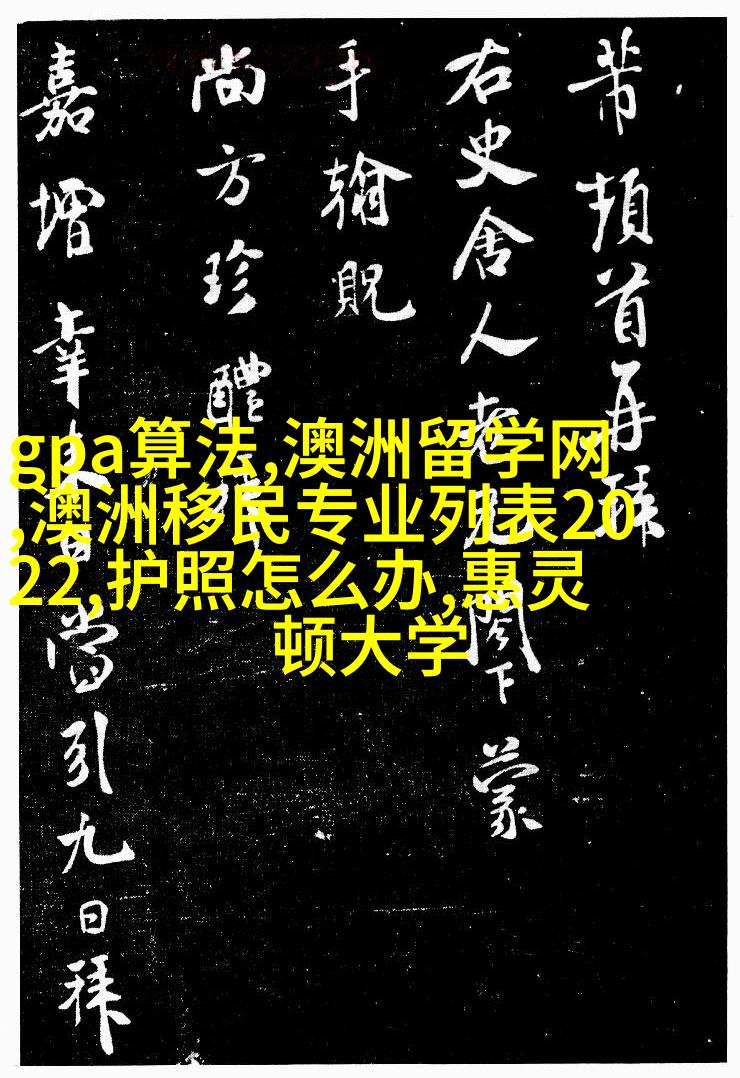 芾頓首再拜
右史舍人老兄閣下蒙
手翰貺
尚方珍醴
嘉增幸
當引九日拜
gpa算法,澳洲留学网
,澳洲移民专业列表20
22,护照怎么办,惠灵
顿大学